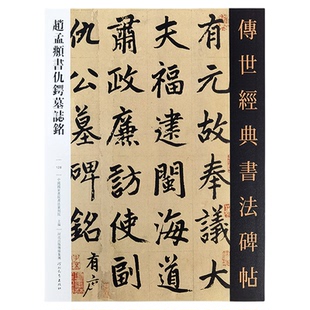 傳世經典書法碑帖
有元故奉議大
夫福建閩海道
肅政廉訪使副
仇公墓碑銘有序
趙孟頫書仇鍔墓誌銘